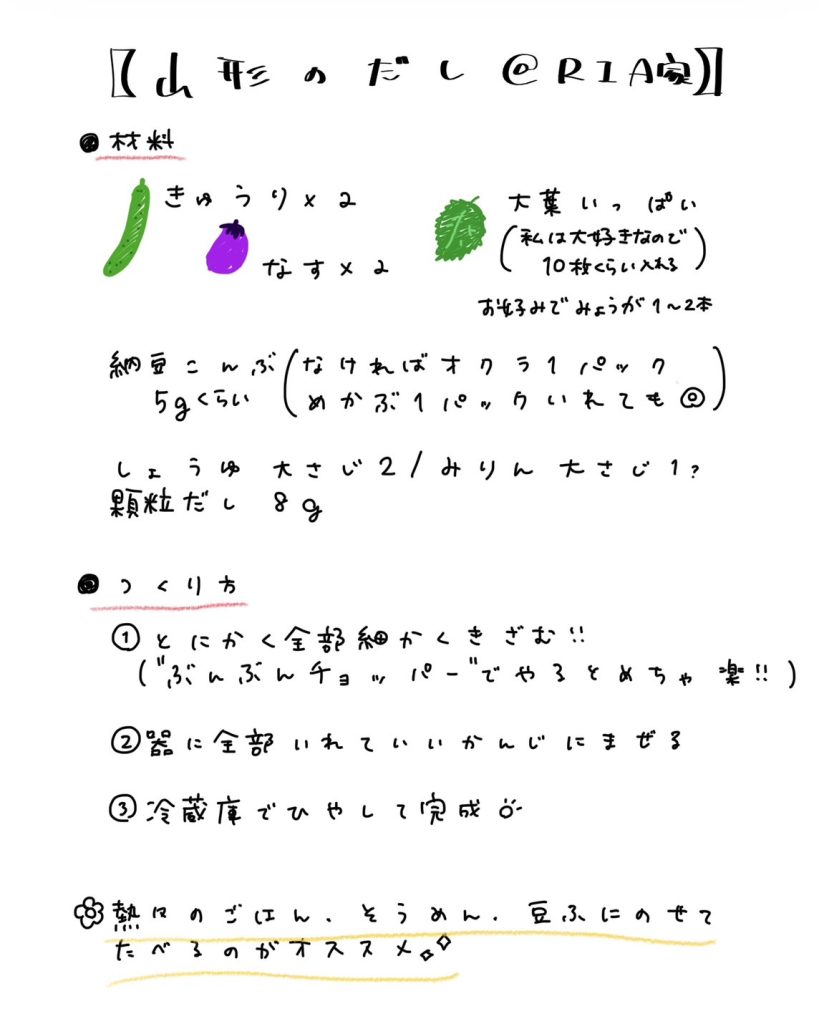 【山形のだし@RIA家】
材料
きゅうり×2
なす×2
大葉いっぱい
(私は大好きなので
10枚くらい入れる)
お好みでみょうが1〜2本
納豆こんぶ(なければオクラ1パック
5gくらい めかぶ1パックいれても◎)
しょうゆ 大さじ2/みりん 大さじ1?
顆粒だし 8g
つくり方
①とにかく全部細かくきざむ!!
("ぶんぶんチョッパー"でやるとめちゃ楽!!)
②器に全部いれていいかんじにまぜる
③冷蔵庫でひやして完成
熱々のごはん、そうめん、豆ふにのせて
たべるのがオススメ